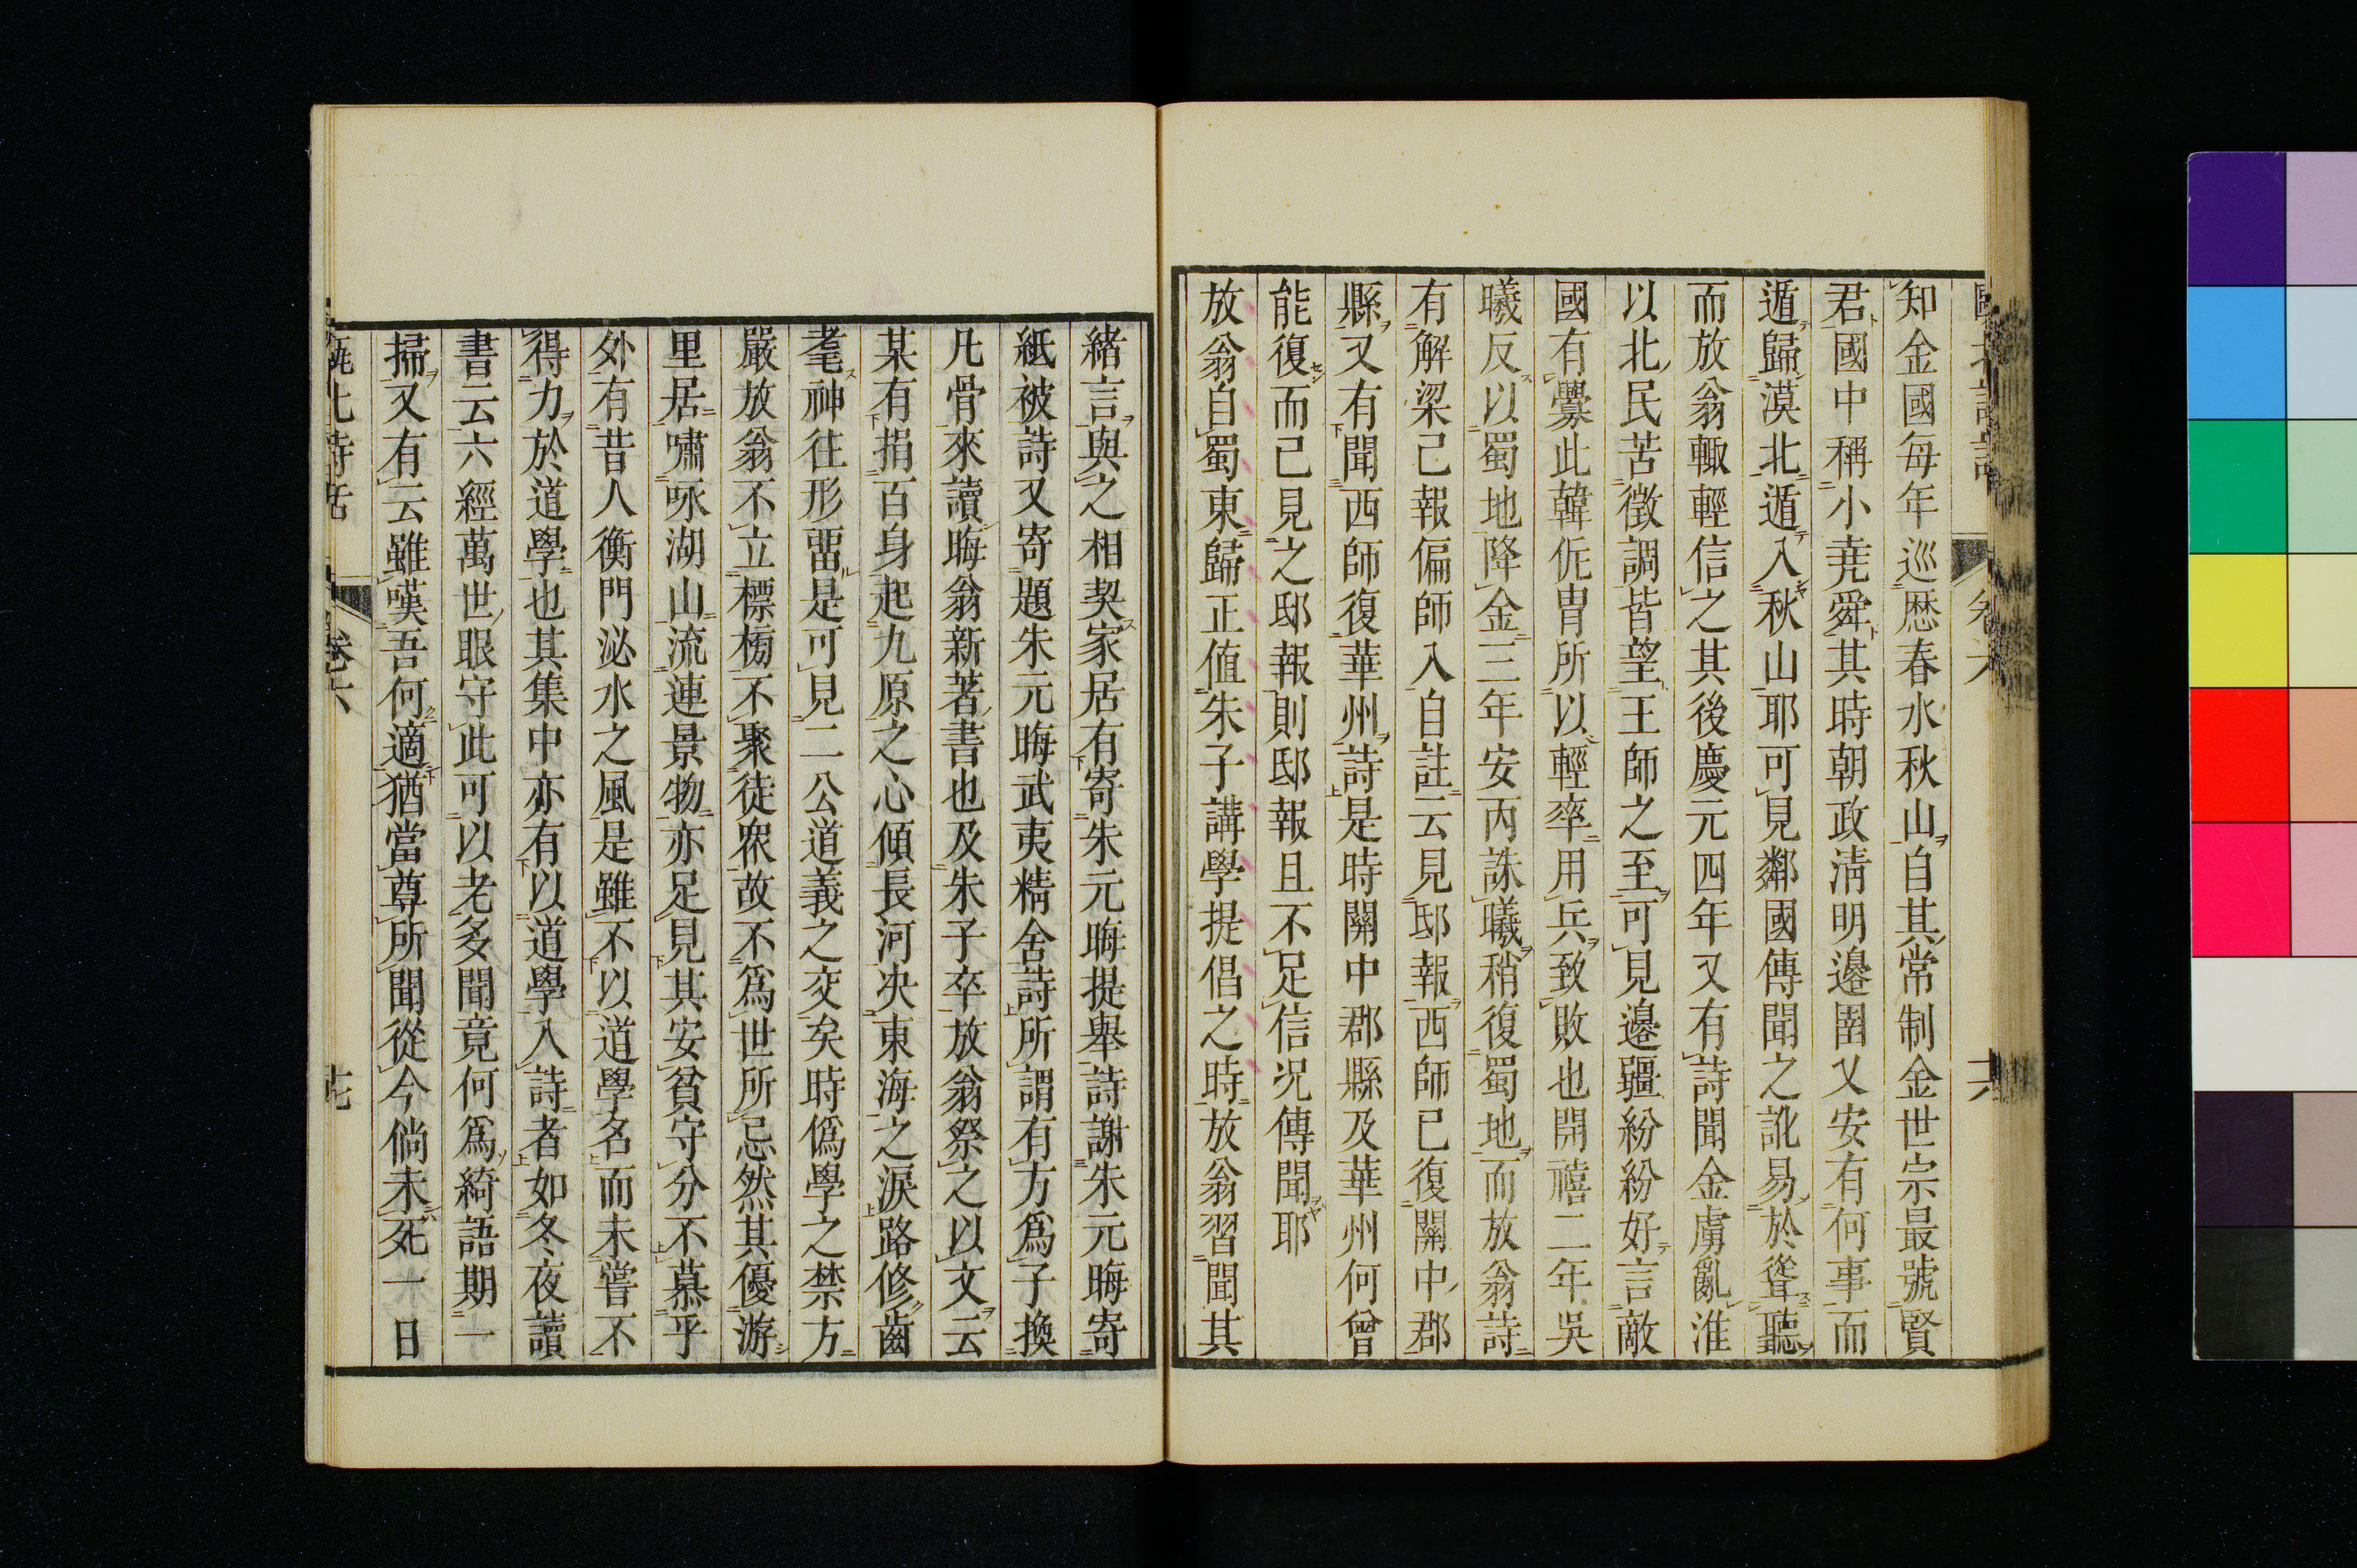 知金國每年巡歷春水秋山自其常制金世宗最號賢
君國中稱小堯舜其時朝政清明邊圉又安有何事而
遁歸漠北遁入秋山耶可見鄰國傳聞之訛易於聳聽
而放翁輙輕信之其後慶元四年又有詩聞金虜亂淮
以北民苦徵調皆望王師之至可見邊疆紛紛好言敵
國有釁此韓侂胄所以輕率用兵致敗也開禧二年吳
曦反以蜀地降金三年安丙誅曦稍復蜀地而放翁詩
有解梁已報偏師入自註云見邸報西師已復關中郡
縣又有聞西師復華州詩是時關中郡縣及華州何曾
能復而已見之邸報則邸報且不足信况傳聞耶
放翁自蜀東歸正值朱子講學提倡之時放翁習聞其
緒言與之相契家居有寄朱元晦提舉詩謝朱元晦寄
紙被詩又寄題朱元晦武夷精舍詩所謂有方爲子換
凡骨來讀晦翁新著書也及朱子卒放翁祭之以文云
某有捐百身起九原之心傾長河决東海之淚路修齒
耄神往形畱是可見二公道義之交矣時僞學之禁方
嚴放翁不立標榜不聚徒衆故不爲世所忌然其優游
里居嘯咏湖山流連景物亦足見其安貧守分不慕乎
外有昔人衡門泌水之風是雖不以道學名而未嘗不
得力於道學也其集中亦有以道學入詩者如冬夜讀
書云六經萬世眼守此可以老多聞竟何爲綺語期一
掃又有云雖嘆吾何適猶當尊所聞從今倘未死一日
卷六
十七